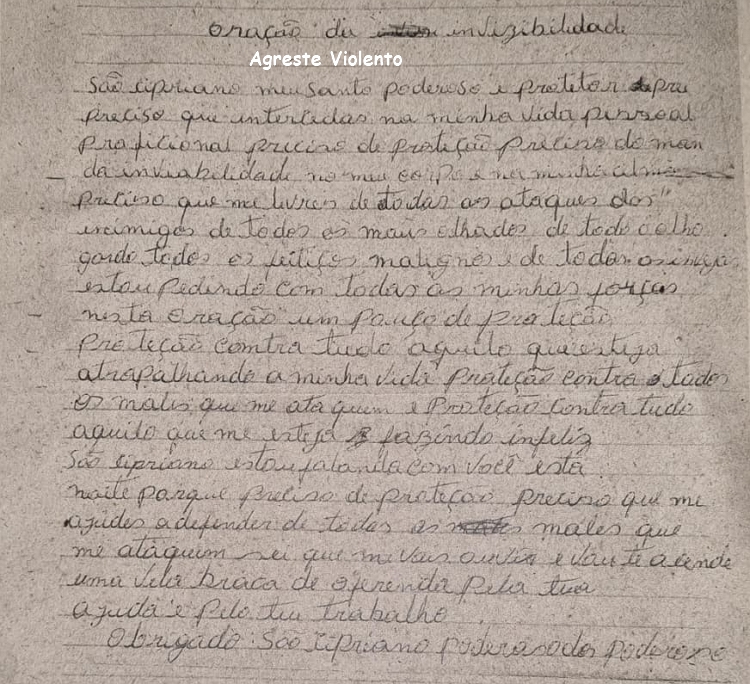 oração du invizibilidade
Agreste Violento
São cipriano meu santo poderoso e protetor pre
preciso que intercedas na minha vida pessoal
proficional preciso de proteção preciso do man
da inviabilidade no meu corpo e na minha alma
preciso que me livres de todas as ataques dos
inimigos de todos os maus olhados de todo o olho
gordo todos os feitiços malignos e de todas as invejas
estou pedindo com todas as minhas forças
nesta oração um pouco de proteção
proteção contra tudo aquilo que esteja
atrapalhando a minha vida proteção contra todos
os males que me ataquem e proteção contra tudo
aquilo que me esteja fazendo infeliz
São cipriano estou falando com você esta
noite porque preciso de proteção preciso que me
ajudes a defender de todas as males que
me ataquem sei que me vais ouvir e vou te acende
uma vela braca de oferenda pela tua
ajuda e pelo teu trabalho
Obrigado São cipriano poderoso dos poderoso